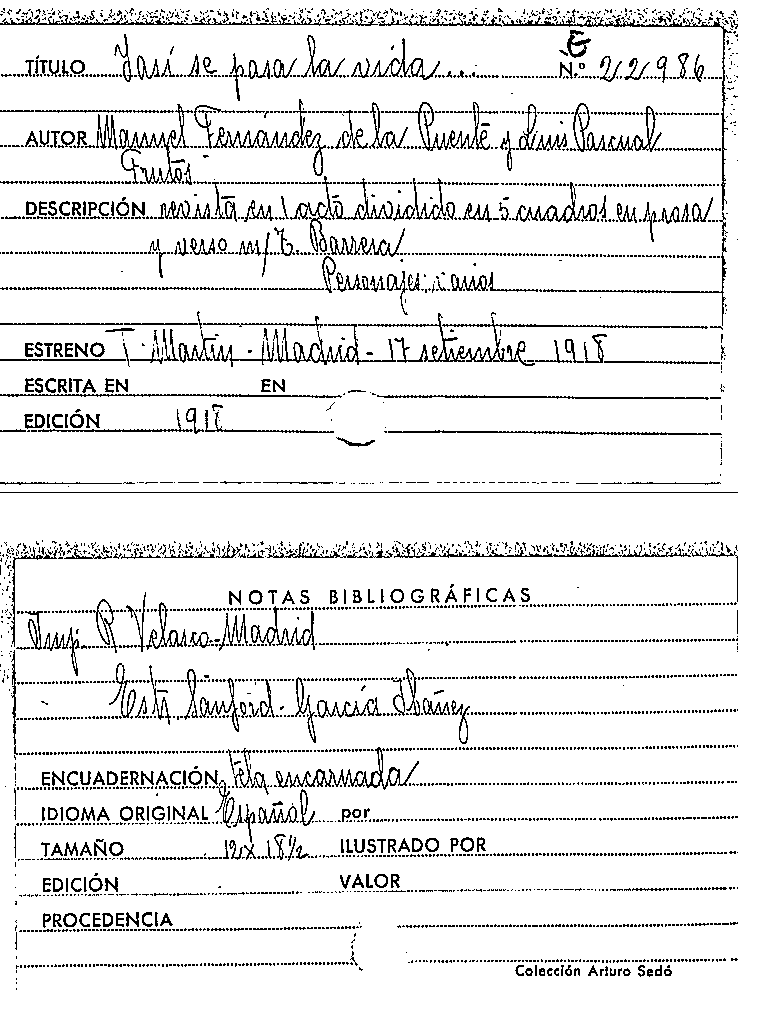 TÍTULO Y así se pasa la vida... E N.º 22986
AUTOR Manuel Fernández de la Puente y Luis Pascual
Frutos
DESCRIPCIÓN revista en 1 acto dividido en 5 cuadros en prosa
y verso m/ T. Barrera
Personajes: varios
ESTRENO T. Martín - Madrid - 17 setiembre 1918
ESCRITA EN EN
EDICIÓN 1918
NOTAS BIBLIOGRÁFICAS
Imp. R Velasco - Madrid
Estr. Sanford - García Ibáñez
ENCUADERNACIÓN tela encarnada
IDIOMA ORIGINAL Español por
TAMAÑO 12 x 18½ ILUSTRADO POR
EDICIÓN VALOR
PROCEDENCIA
Colección Arturo Sedó